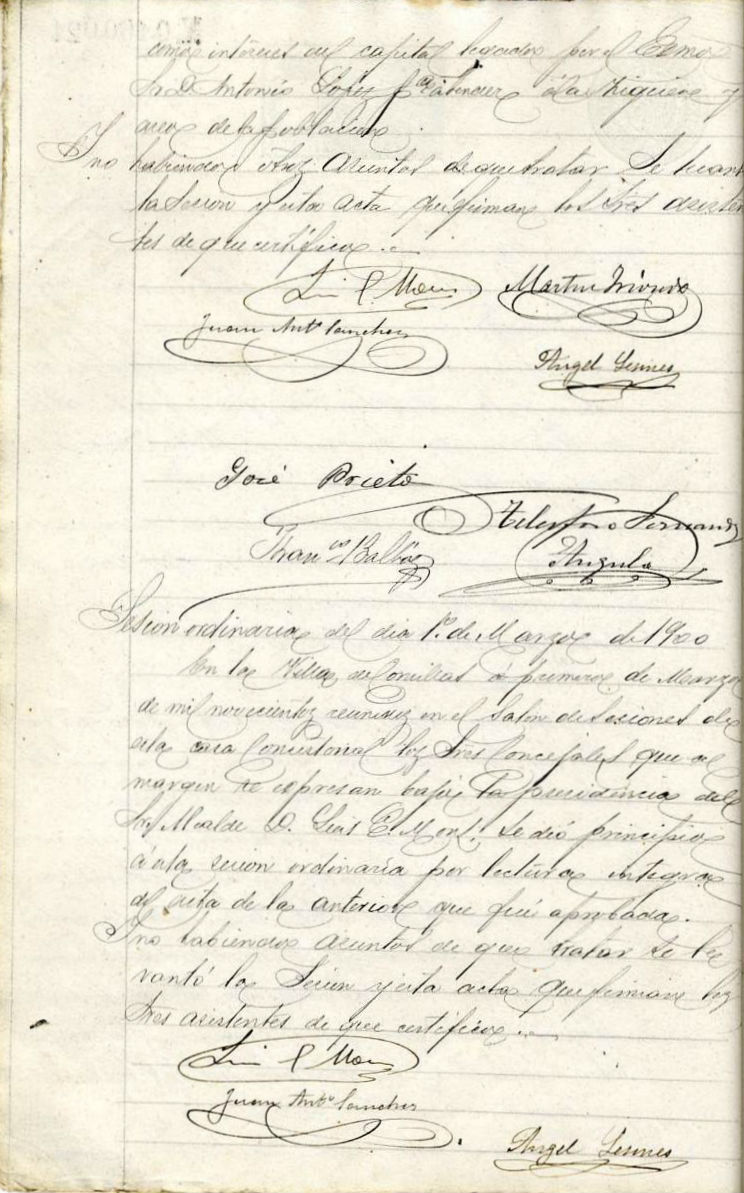 como intereses del capital legado por el Exmo
Sr D. Antonio Lopez
area de la poblacion.
Y no habiendo otroz asuntos de que tratar se levant
la secion y esta acta que firman los Sres asisten
tes de que certifico.
Luis P. Mon Martin
Juan Antº Sanchez
Angel
José Prieto
Telesforo Fernandz
Franco Balbás Angulo
Sesion ordinaria del dia 1º de Marzo de 1900
En la Villa de Comillas á primero de Marzo
de mil novecientoz reunidoz en el Salon de Sesiones de
esta casa Concistorial loz Sres Concejales que al
margen se espresan bajo la presidencia del
Sr. Alcalde D. Luis P. Mon. se dió principio
á esta secion ordinaria por lectura integra
del acta de la anterior que fué aprobada.
Y no habiendo asuntos de que tratar se le
vantó la Secion y esta acta que firman loz
Sres asistentes de que certifico.
Luis P Mon
Juan Antº Sanchez
Angel